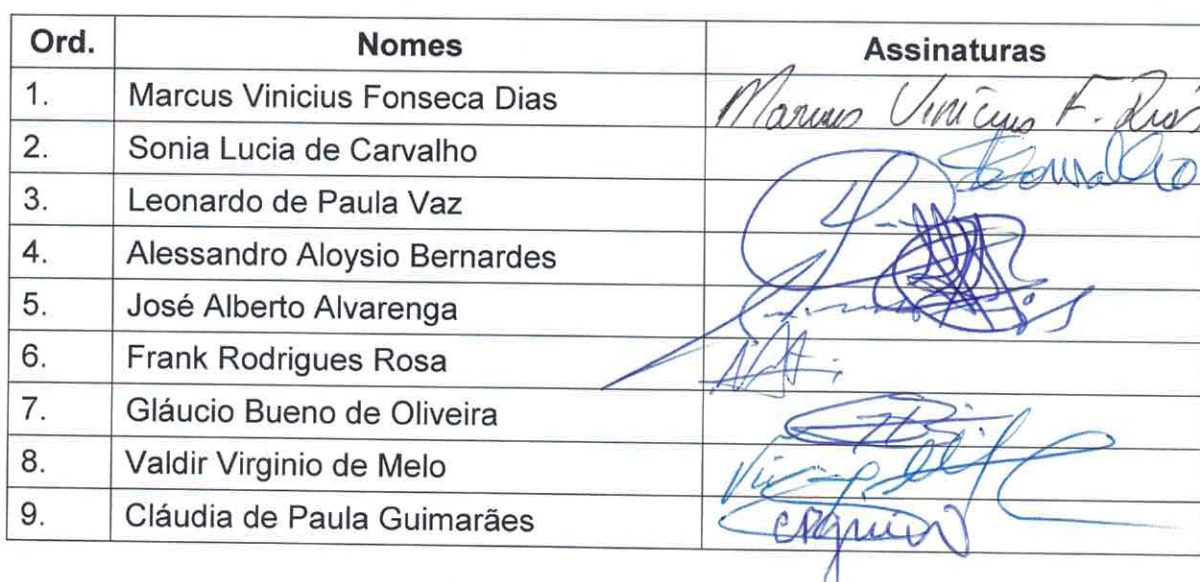 Ord. Nomes Assinaturas
1. Marcus Vinicius Fonseca Dias Marcus Vinicius F. Dias
2. Sonia Lucia de Carvalho SCarvalho
3. Leonardo de Paula Vaz
4. Alessandro Aloysio Bernardes
5. José Alberto Alvarenga
6. Frank Rodrigues Rosa
7. Gláucio Bueno de Oliveira
8. Valdir Virginio de Melo
9. Cláudia de Paula Guimarães